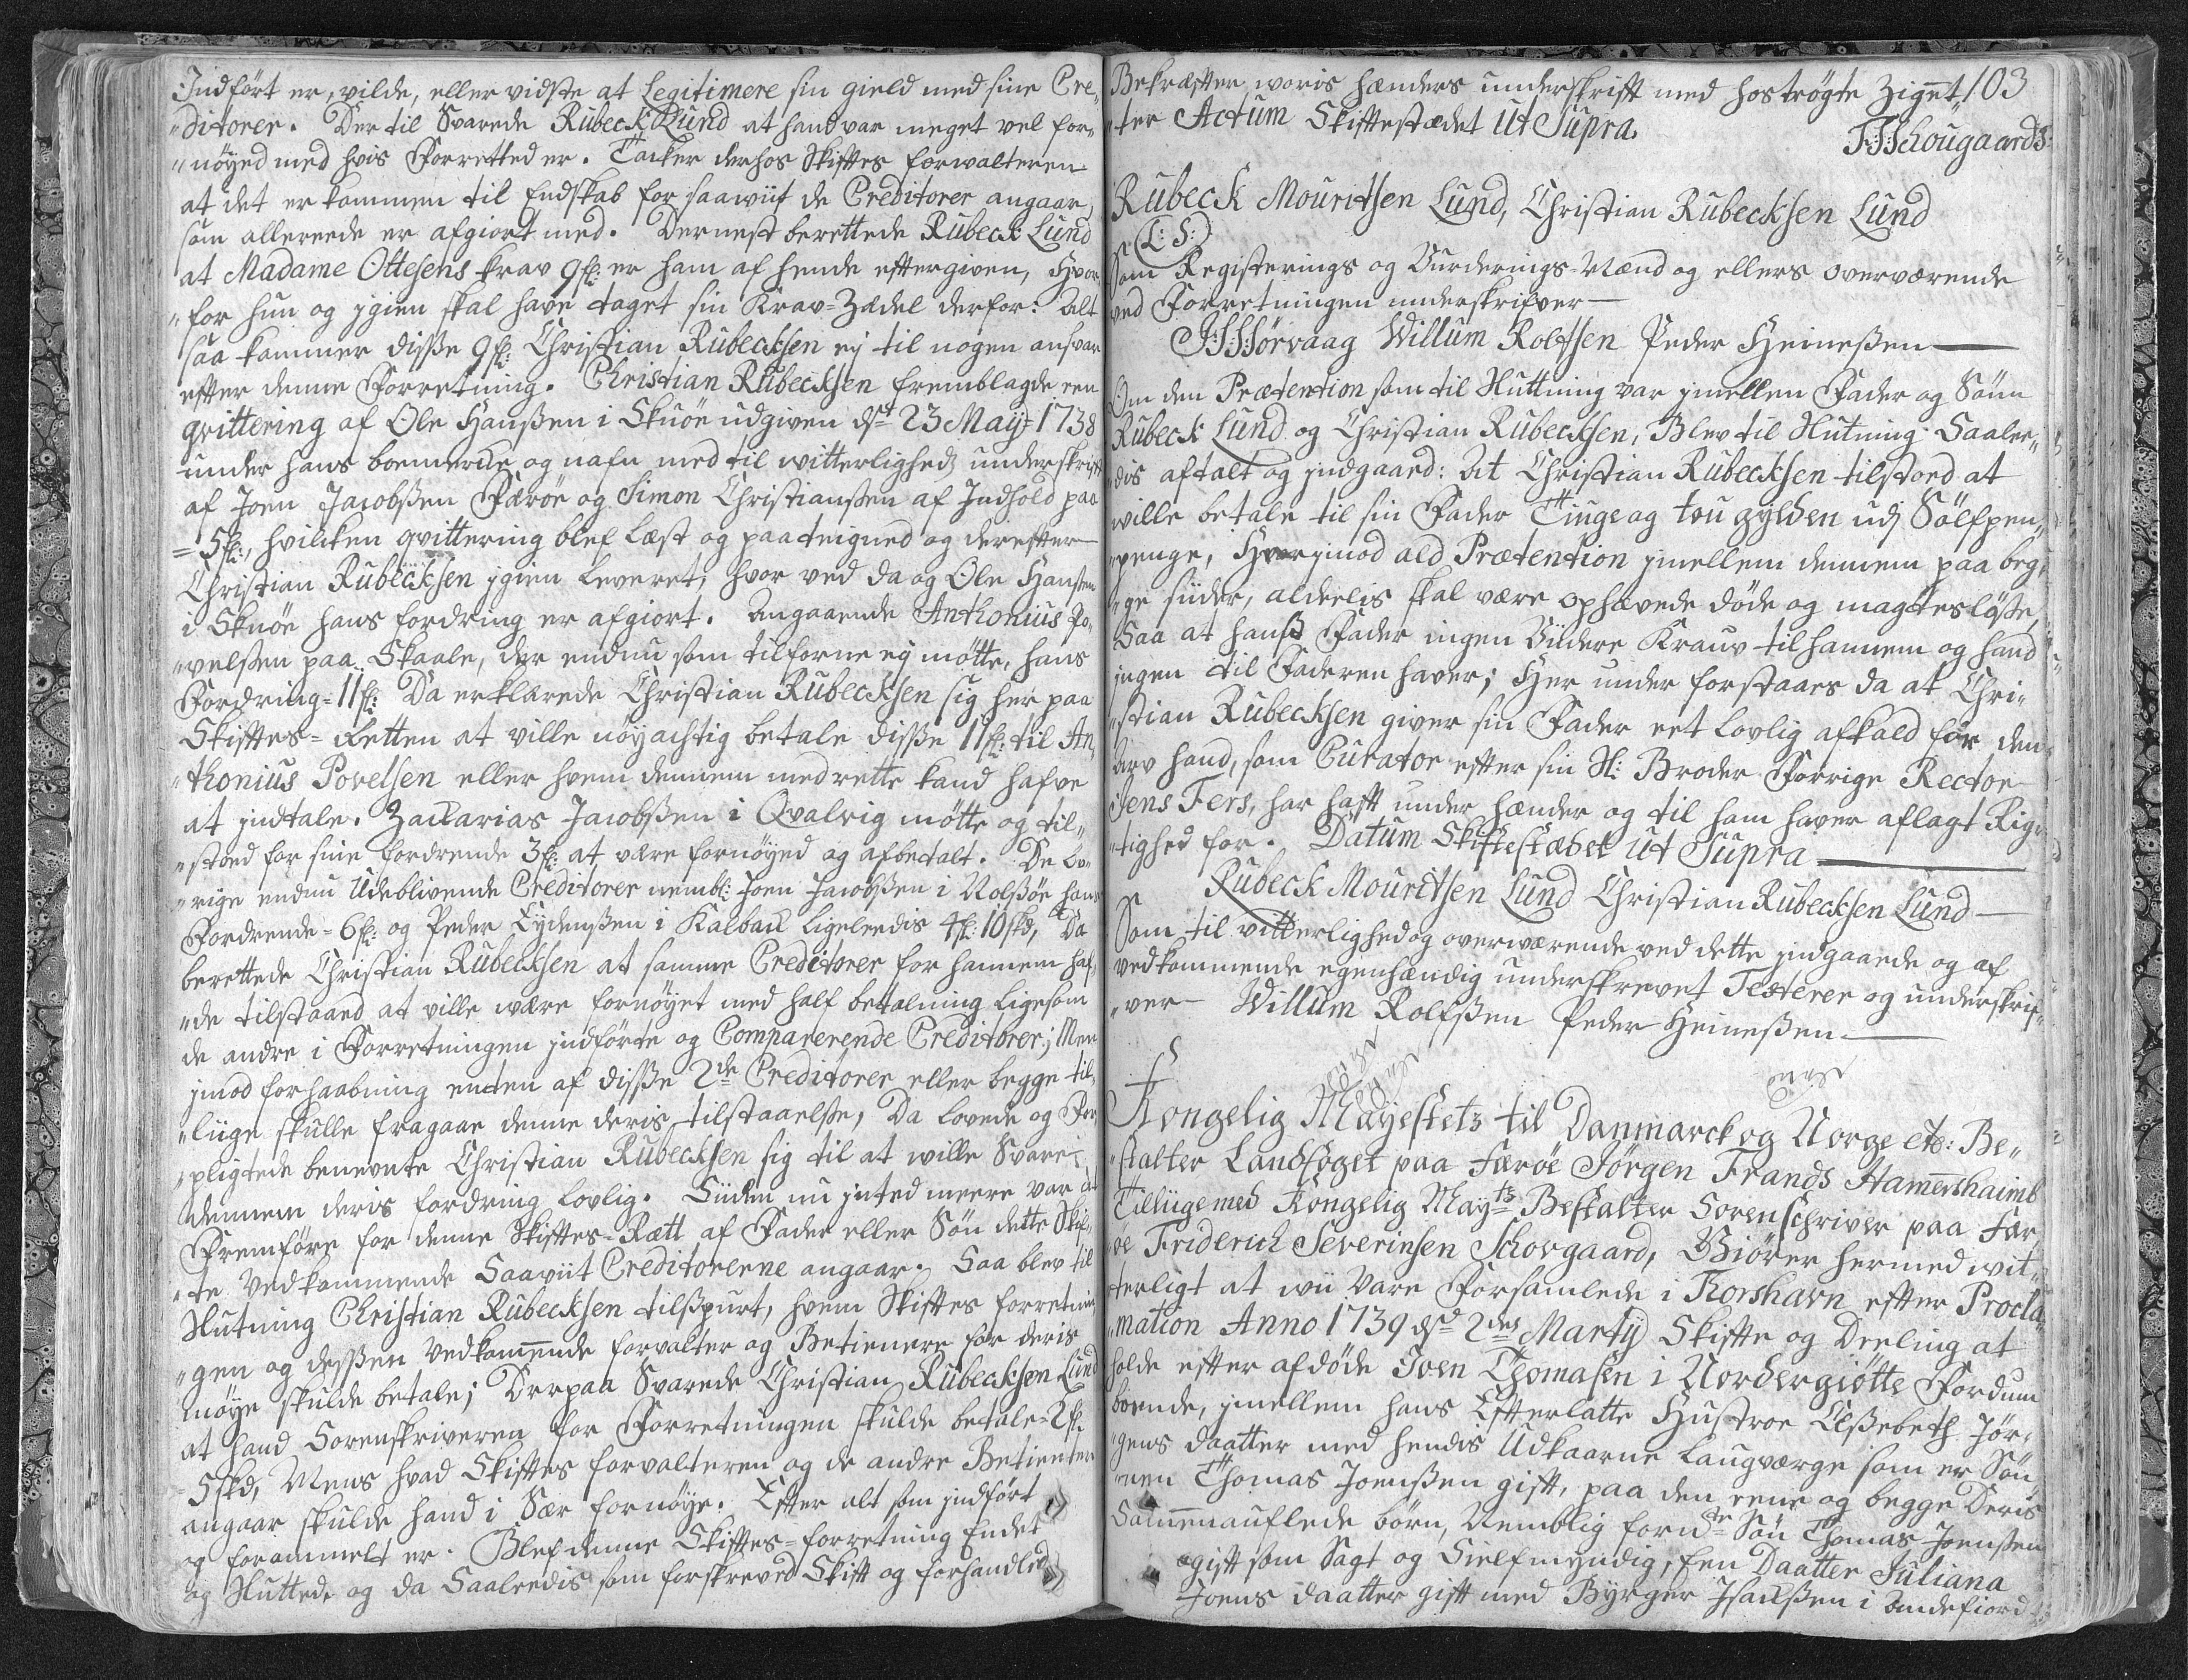 Indført er, vilde, eller vidste at Legitimere sin gield med sine Cre„
„ditorer. Der til Svarede Rubeck Lund at hand var meget vel for„
„nöyed med hvis Forretted er. Tacker derhos Skiftes forvalteren
at det er kommen til Endskab for saawiit de Creditorer angaar,
som allereede er afgiort med. Dernest berettede Rubeck Lund
at Madame Ottesens krav 9 fl: er ham af hende eftergiven, Hvor
„for hun og igien skal have taget sin Krav-Zedel derfor: Alt
saa kommer disse 9 fl: Christian Rubecksen ey til nogen ansvar
efter denne Forretning. Christian Rubecksen fremblagde een
qvittering af Ole Hanßen i Skuöe udgiven dst 23 May: 1738
under hans boemerke og nafn med til witterlighed underskrift
af Joen Jacobßen Færöe og Simon Christianßen af Indhold paa
= 5 fl:, hvilcken qvittering blef Læst og paateigned og derefter
Christian Rubecksen igien Leveret, hvor ved da og Ole Hanßen
i Skuöe hans fordring er afgiort. Angaaende Anthonius Po„
„velßen paa Skaale, der endnu som tilforne ey mötte, hans
Fordring = 11 fl: Da erklærede Christian Rubecksen sig her paa
Skiftes-Retten at ville nöyachtig betale disse 11 fl: til An„
„thonius Povelsen eller hvem dennem med rette kand hafve
at indtale. Zacharias Jacobßen i Qvalvig mötte og til„
„stoed for sine fordrende 3 fl: at være fornöyed og afbetalt. De öv„
„rige endnu Udeblivende Creditorer nembl: Joen Jacobßen i Nolßöe hans
Fordrende = 6 fl: og Peder Eydenßen i Kalback ligeleedis 4 fl: 10 skd, Da
berettede Christian Rubecksen at samme Creditorer for hannem haf„
„de tilstaaed at ville være fornöyet med half bettalning ligesom
de andre i Forretningen indförte og Comparerende Creditorer; Men
imod forhaabning enten af disse 2de Creditorer eller begge til„
„liige skulle fragaae denne deris tilstaaelße, Da lovede og For„
„pligtede benevnte Christian Rubecksen sig til at wille Svare
dennem deris fordring lovlig. Siiden nu inted meere var at
Fremföre for denne Skiftes-Rætt af Fader eller Sön dette Skif„
„te Vedkommende Saaviit Creditorerne angaar. Saa blev til
Slutning Christian Rubecksen tilßpurt, hvem Skiftes forretnin„
„gen og dessen Vedkommende forvalter og Betienere for deris
möye skulde betale; Derpaa Svarede Christian Rubecksen Lund
at hand Sorenskriveren for Forretningen skulde betale = 2 fl:
5 skd, Mens hvad Skiftes forvalteren og de andre Betienter
angaar skulde hand i Sær fornöye. Efter alt som indfört
og forammelt er. Blef denne Skiftes-forretning Endet
og Slutted, og da Saaleedis som forskreved Skift og forhandled
Bekræfter woris hænders underskrift med hoströgte Zignet„ 103
„ter Actum Skiftestædet Ut Supra.
F: S: Schougaard S:
Rubeck Mouritsen Lund, Christian Rubecksen Lund
(L: S:)
Som Registerings og Vurderings-Mænd og ellers overværende
ved Forretningen underskrifver
J: S: Sørvaag Willum Rolfsen Peder Heineßen
Om den Prætention som til Sluttning var imellem Fader og Sönn
Rubeck Lund og Christian Rubecksen, Blev til Slutning Saalee„
„dis aftalt og indgaaed: At Christian Rubecksen tilstoed at
wille betale til sin Fader Tiuge og tou gylden udj Sölfpen„
„penge, Hvorimod ald Prætention imellem dennem paa beg„
„ge siider, aldeelis skal være ophævede döde og magteslöße,
Saa at hanß Fader ingen Viidere Krauv til hannem og hand
ingen til Faderen haver; Her under forstaaes da at Chri„
„stian Rubecksen giver sin Fader eet Lovlig afkald for den
Arv hand, som Curator efter sin Sl: Broder Forrige Rector
Jens Fers, har haft under hænder og til ham haver aflagt Rig„
„tighed for. Datum Skiftestædet Ut Supra
Rubeck Mouritsen Lund Christian Rubecksen Lund
Som til vitterlighed og overwærende ved dette indgaaede og af
vedkommende egenhændig underskrevet Testerer og underskrif„
„ver Willum Rolfßen Peder Heineßen
Kongelig Mayestets til Danmarck og Norge etc: Be„
„stalter Landfoget paa Færöe Jörgen Frands Hammershaimb
Tilliige med Kongelig Mayts Bestalter Sorenschriver paa Fær„
öe Friderich Severinsen Schovgaard, Giörer hermed wit„
terligt at wii Vare Forsamlede i Thorshavn efter Procla„
„mation Anno 1739 dst 2den Martij Skifte og Deeling at
holde efter afdöde Joen Thomasen i Nordergiötte Fordum
boende, imellem hans Efterlatte Hustroe Elßebeth Jör„
„gens daatter med hendis Udkaarne Laugværge som er Sön„
„nen Thomas Joenßen gift, paa den eene og begge Deris
Sammenauflede börn, Nemblig forne Sön Thomas Joenßen
gift som Sagt og Sielfmyndig, Een Daatter Juliana
Joens daatter gift med Byrger Isachßen i Andefiord